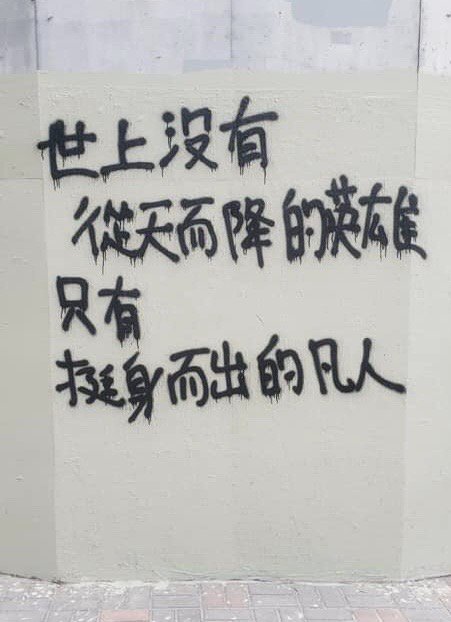 世上沒有
從天而降的英雄
只有
挺身而出的凡人